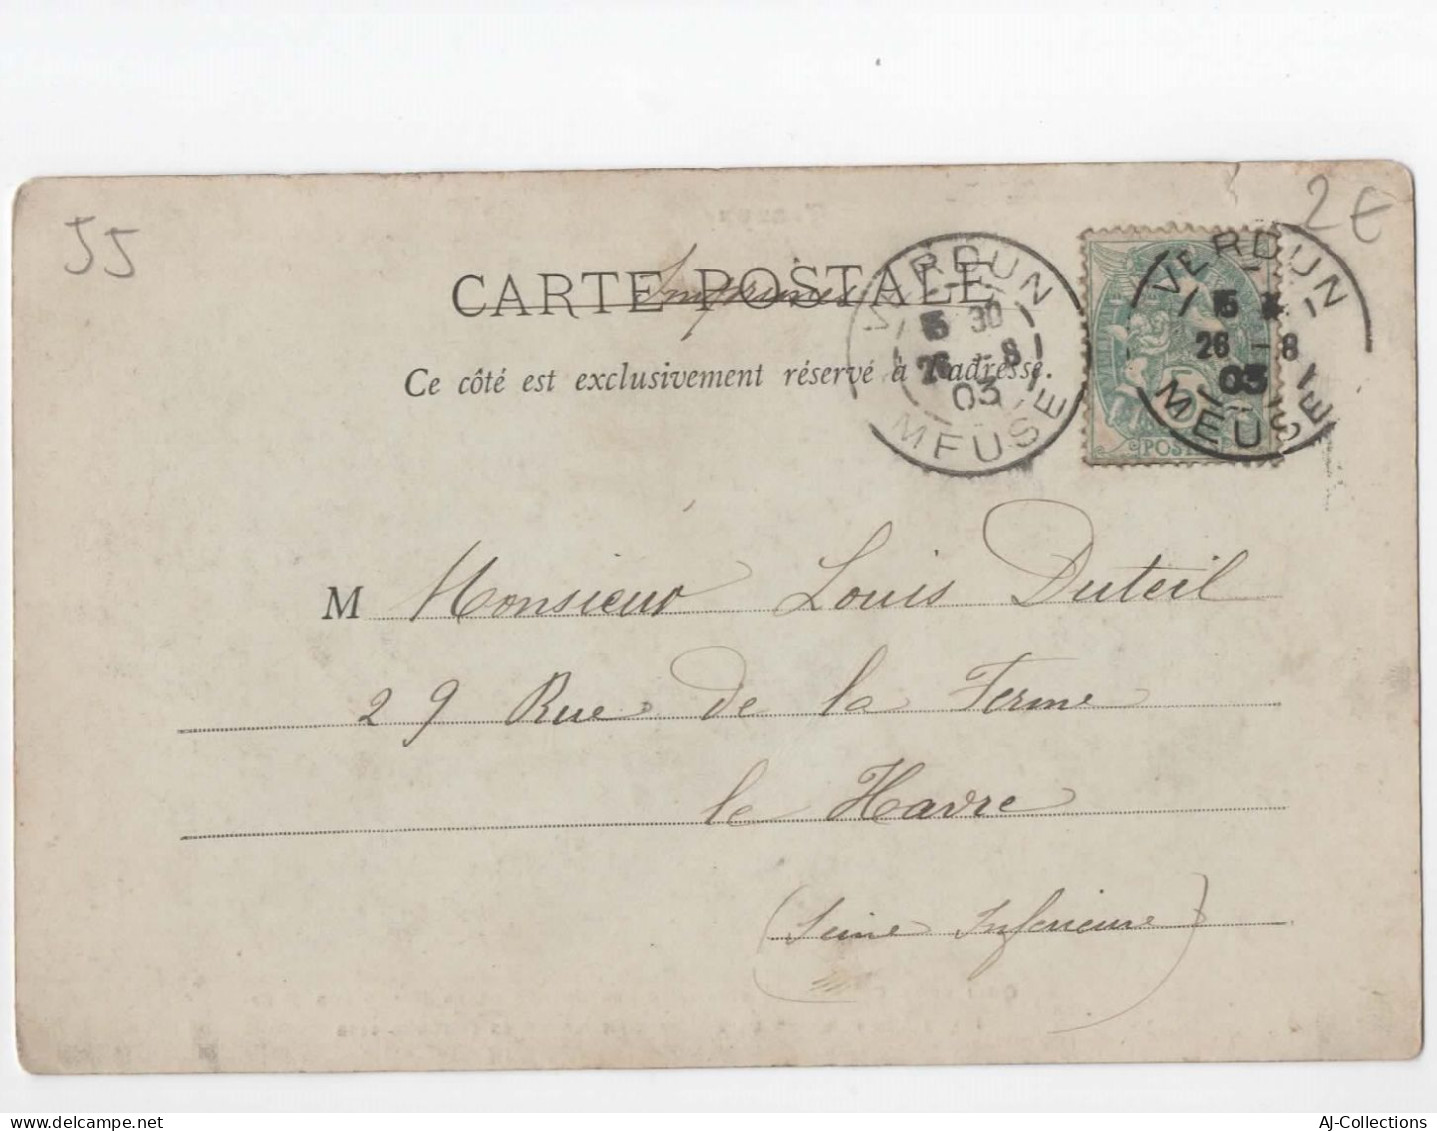 55
2€
CARTE POSTALE
Imprimés
Ce côté est exclusivement réservé à l'adresse.
VERDUN
15 30
26 - 8
03
MEUSE
VERDUN
15
26 - 8
03
MEUSE
5
POST
M Monsieur Louis Duteil
29 Rue de la Ferme
le Havre
(Seine Inférieure)
AJ-Collections